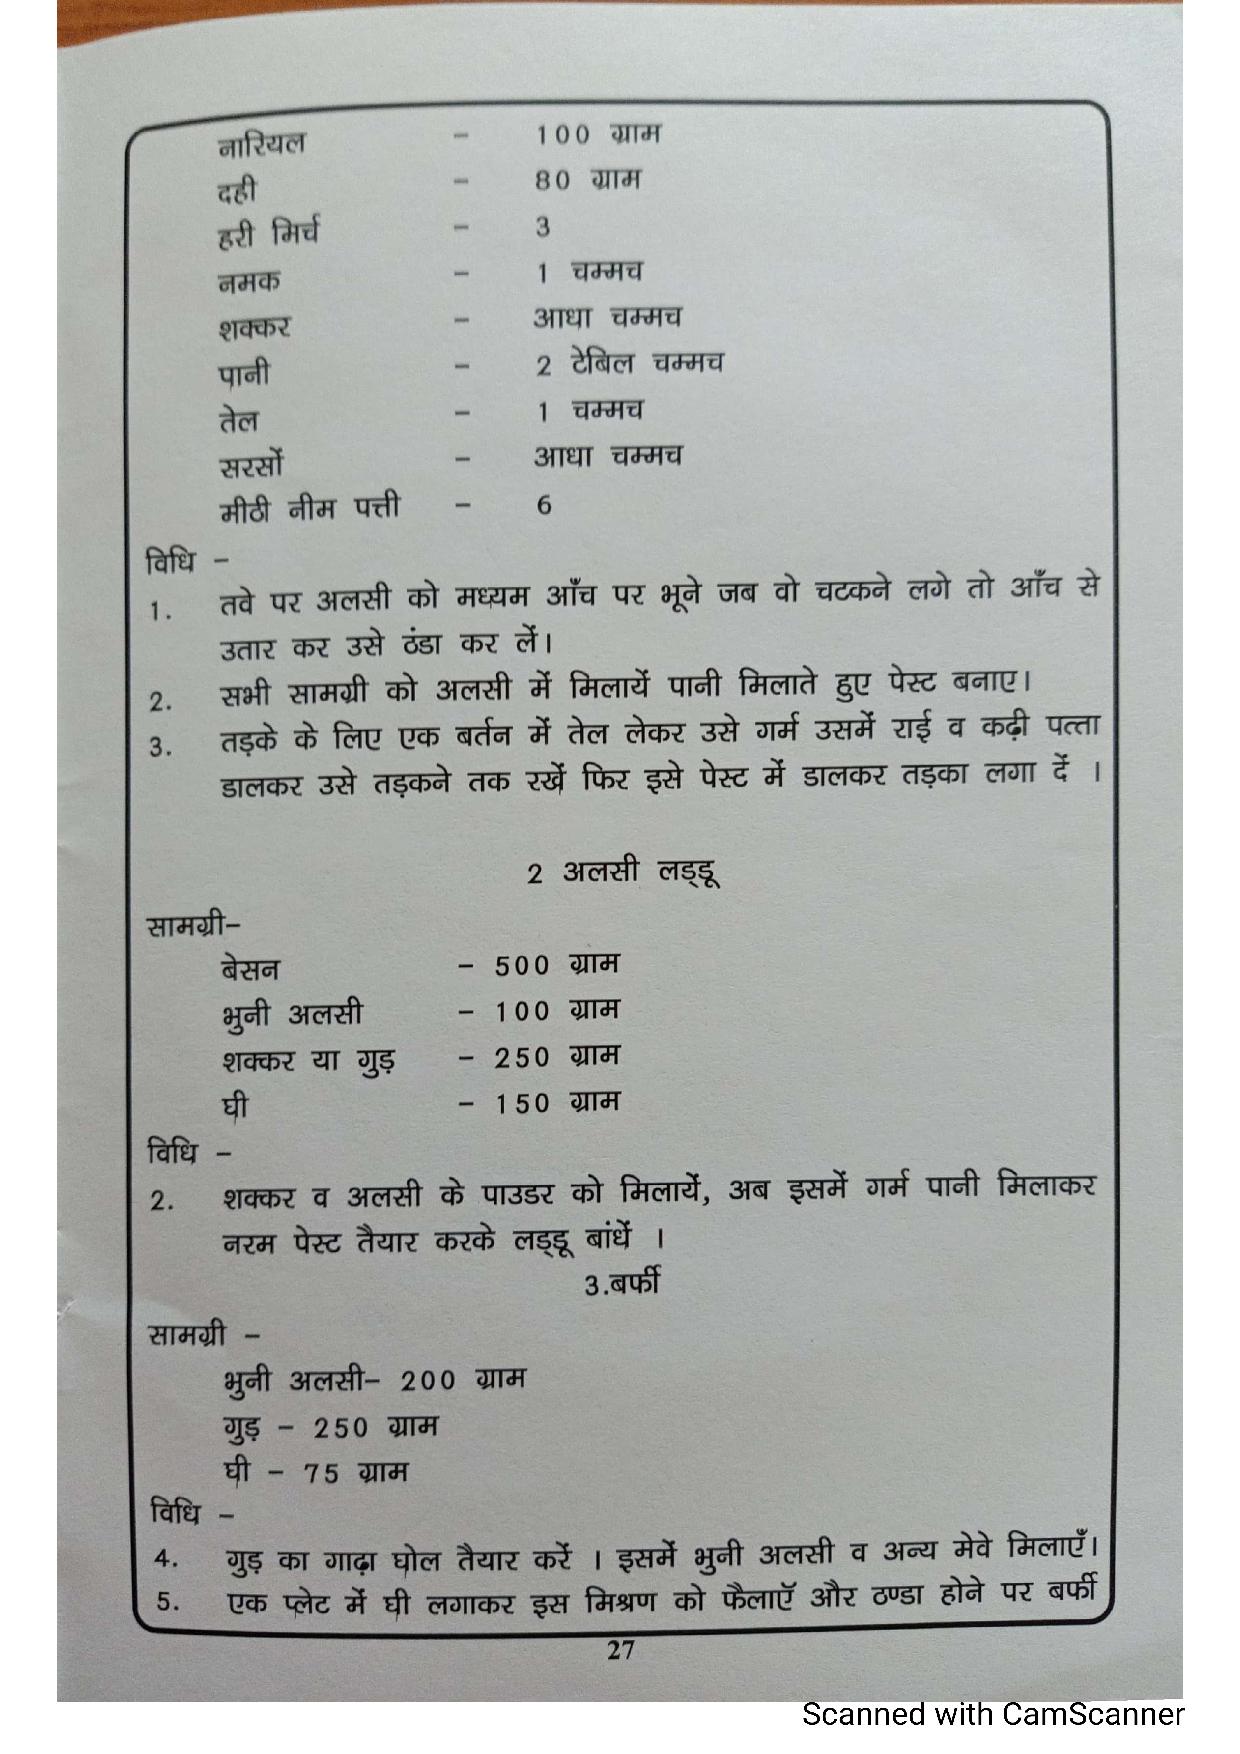 नारियल - 100 ग्राम
दही - 80 ग्राम
हरी मिर्च - 3
नमक - 1 चम्मच
शक्कर - आधा चम्मच
पानी - 2 टेबिल चम्मच
तेल - 1 चम्मच
सरसों - आधा चम्मच
मीठी नीम पत्ती - 6
विधि -
1. तवे पर अलसी को मध्यम आँच पर भूने जब वो चटकने लगे तो आँच से
उतार कर उसे ठंडा कर लें।
2. सभी सामग्री को अलसी में मिलायें पानी मिलाते हुए पेस्ट बनाए।
3. तड़के के लिए एक बर्तन में तेल लेकर उसे गर्म उसमें राई व कढ़ी पत्ता
डालकर उसे तड़कने तक रखें फिर इसे पेस्ट में डालकर तड़का लगा दें ।
2 अलसी लड्डू
सामग्री-
बेसन - 500 ग्राम
भुनी अलसी - 100 ग्राम
शक्कर या गुड़ - 250 ग्राम
घी - 150 ग्राम
विधि -
2. शक्कर व अलसी के पाउडर को मिलायें, अब इसमें गर्म पानी मिलाकर
नरम पेस्ट तैयार करके लड्डू बांधें ।
3.बर्फी
सामग्री -
भुनी अलसी- 200 ग्राम
गुड़ - 250 ग्राम
घी - 75 ग्राम
विधि -
4. गुड़ का गाढ़ा घोल तैयार करें । इसमें भुनी अलसी व अन्य मेवे मिलाएँ।
5. एक प्लेट में घी लगाकर इस मिश्रण को फैलाऍ और ठण्डा होने पर बर्फी
27
Scanned with CamScanner